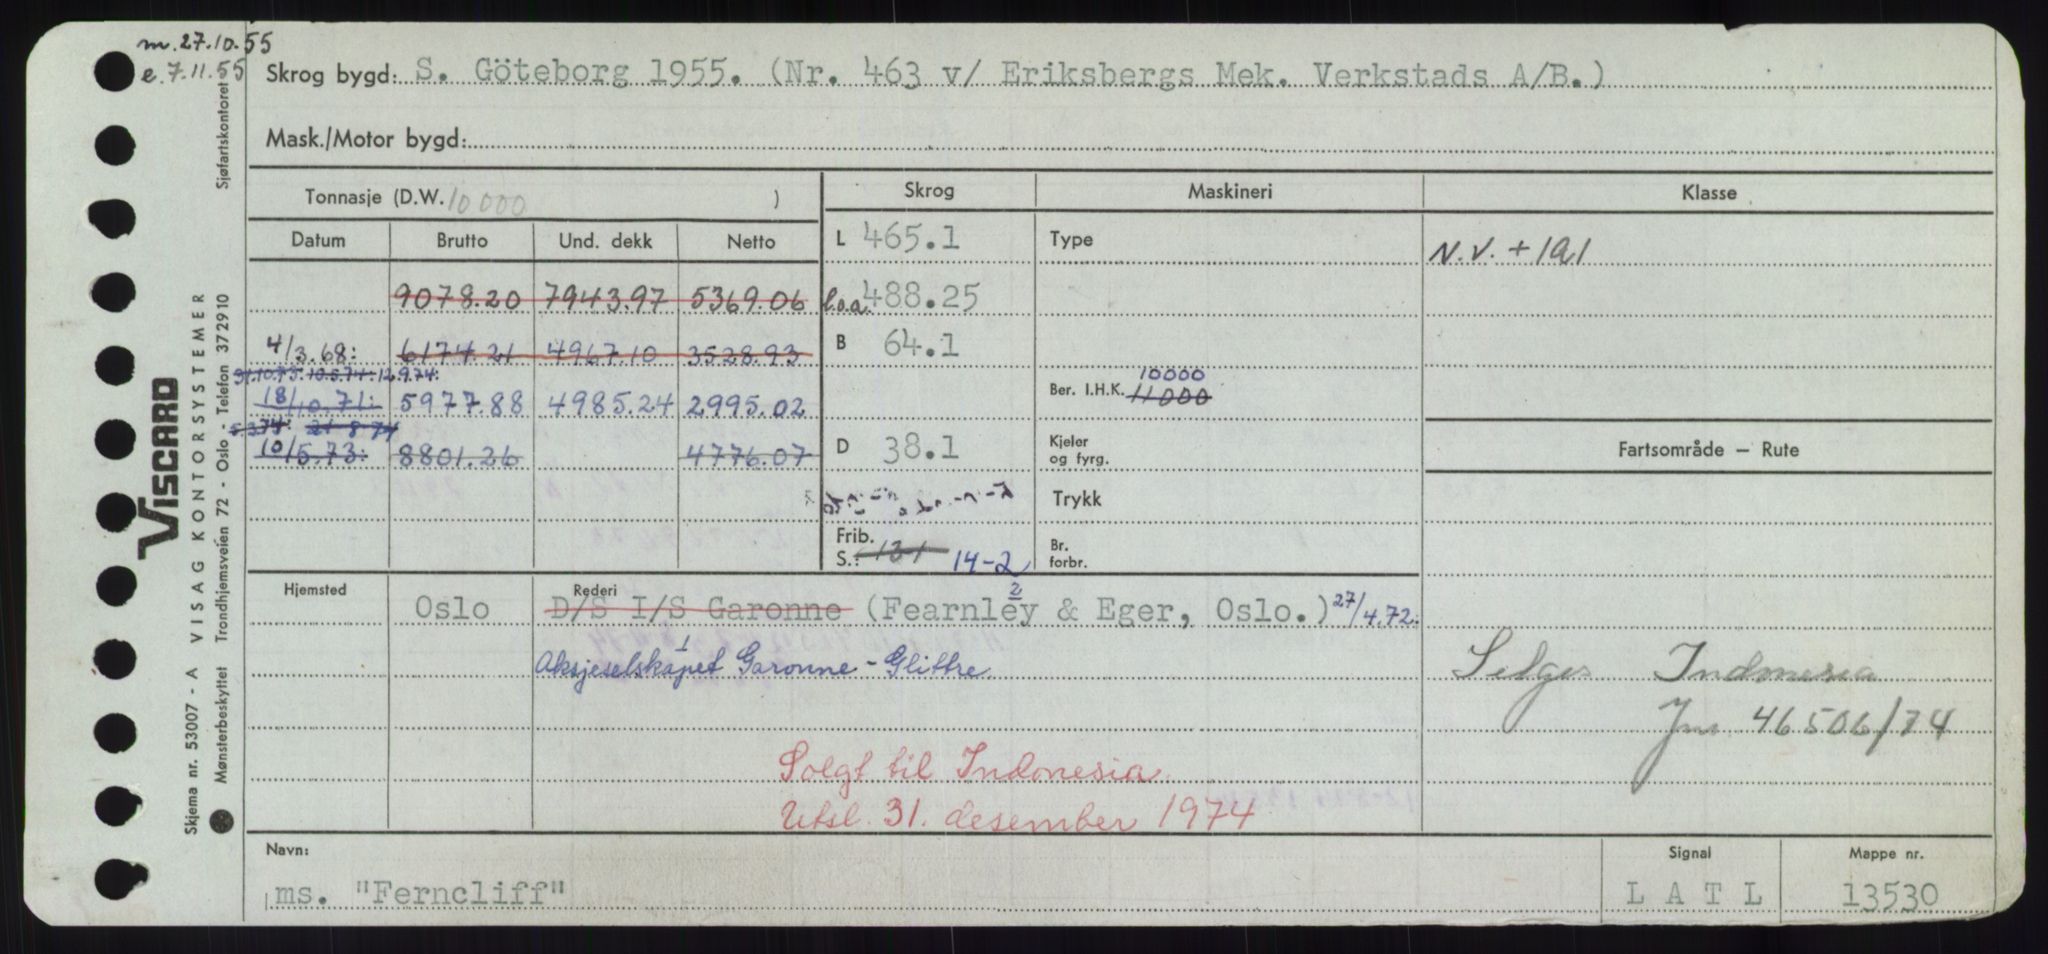 m. 27.10.55
e. 7.11.55
Skrog bygd: S. Göteborg 1955. (Nr. 463 v/ Eriksbergs Mek. Verkstads A/B.)
Mask./Motor bygd:
Tonnasje (D.W. 10000 )
Skrog Maskineri Klasse
Datum Brutto Und. dekk Netto
L 465.1 Type N.V. + 1A1
9078.20 7943.97 5369.06 l.o.a. 488.25
4/3.68: 6174.21 4967.10 3528.93 B 64.1
31.10.73. 10.5.74. 12.9.74:
10000
18/10.71: 5977.88 4985.24 2995.02 Ber. I.H.K. 11000
5.3.74: 21-8-74
10/5.73: 8801.26 4776.07 D 38.1 Kjeler og fyrg. Fartsområde – Rute
Trykk
Frib. S.: 13-1 14-2 Br. forbr.
Hjemsted Rederi
Oslo D/S I/S Garonne (Fearnley & Eger, Oslo.) 2 27/4.72:
1
Aksjeselskapet Garonne - Glittre
Selges Indonesia
Jnr. 46506/74
Solgt til Indonesia.
Utsl. 31. desember 1974
Navn: Signal Mappe nr.
ms. "Ferncliff" L A T L 13530
Sjøfartskontoret
VISCARD
VISAG KONTORSYSTEMER
Trondhjemsveien 72 - Oslo - Telefon 372910
Skjema nr. 53007 - A
Mønsterbeskyttet